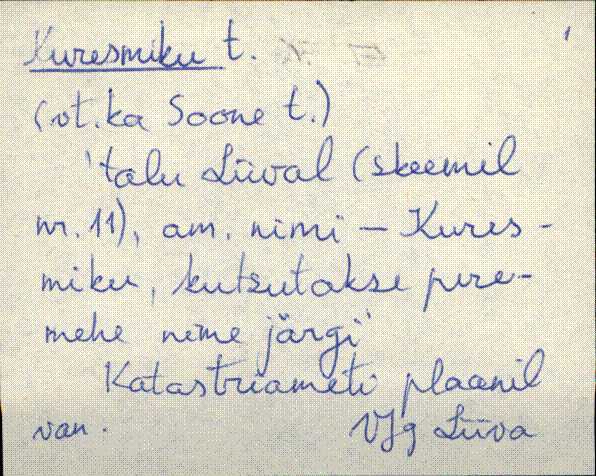 Kuresmiku t.
(vt. ka Soone t.)
'talu Liival (skeemil
nr. 11), am. nimi – Kures-
miku, kutsutakse pere-
mehe nime järgi"
Katastriameti plaanil
van. VJg Liiva